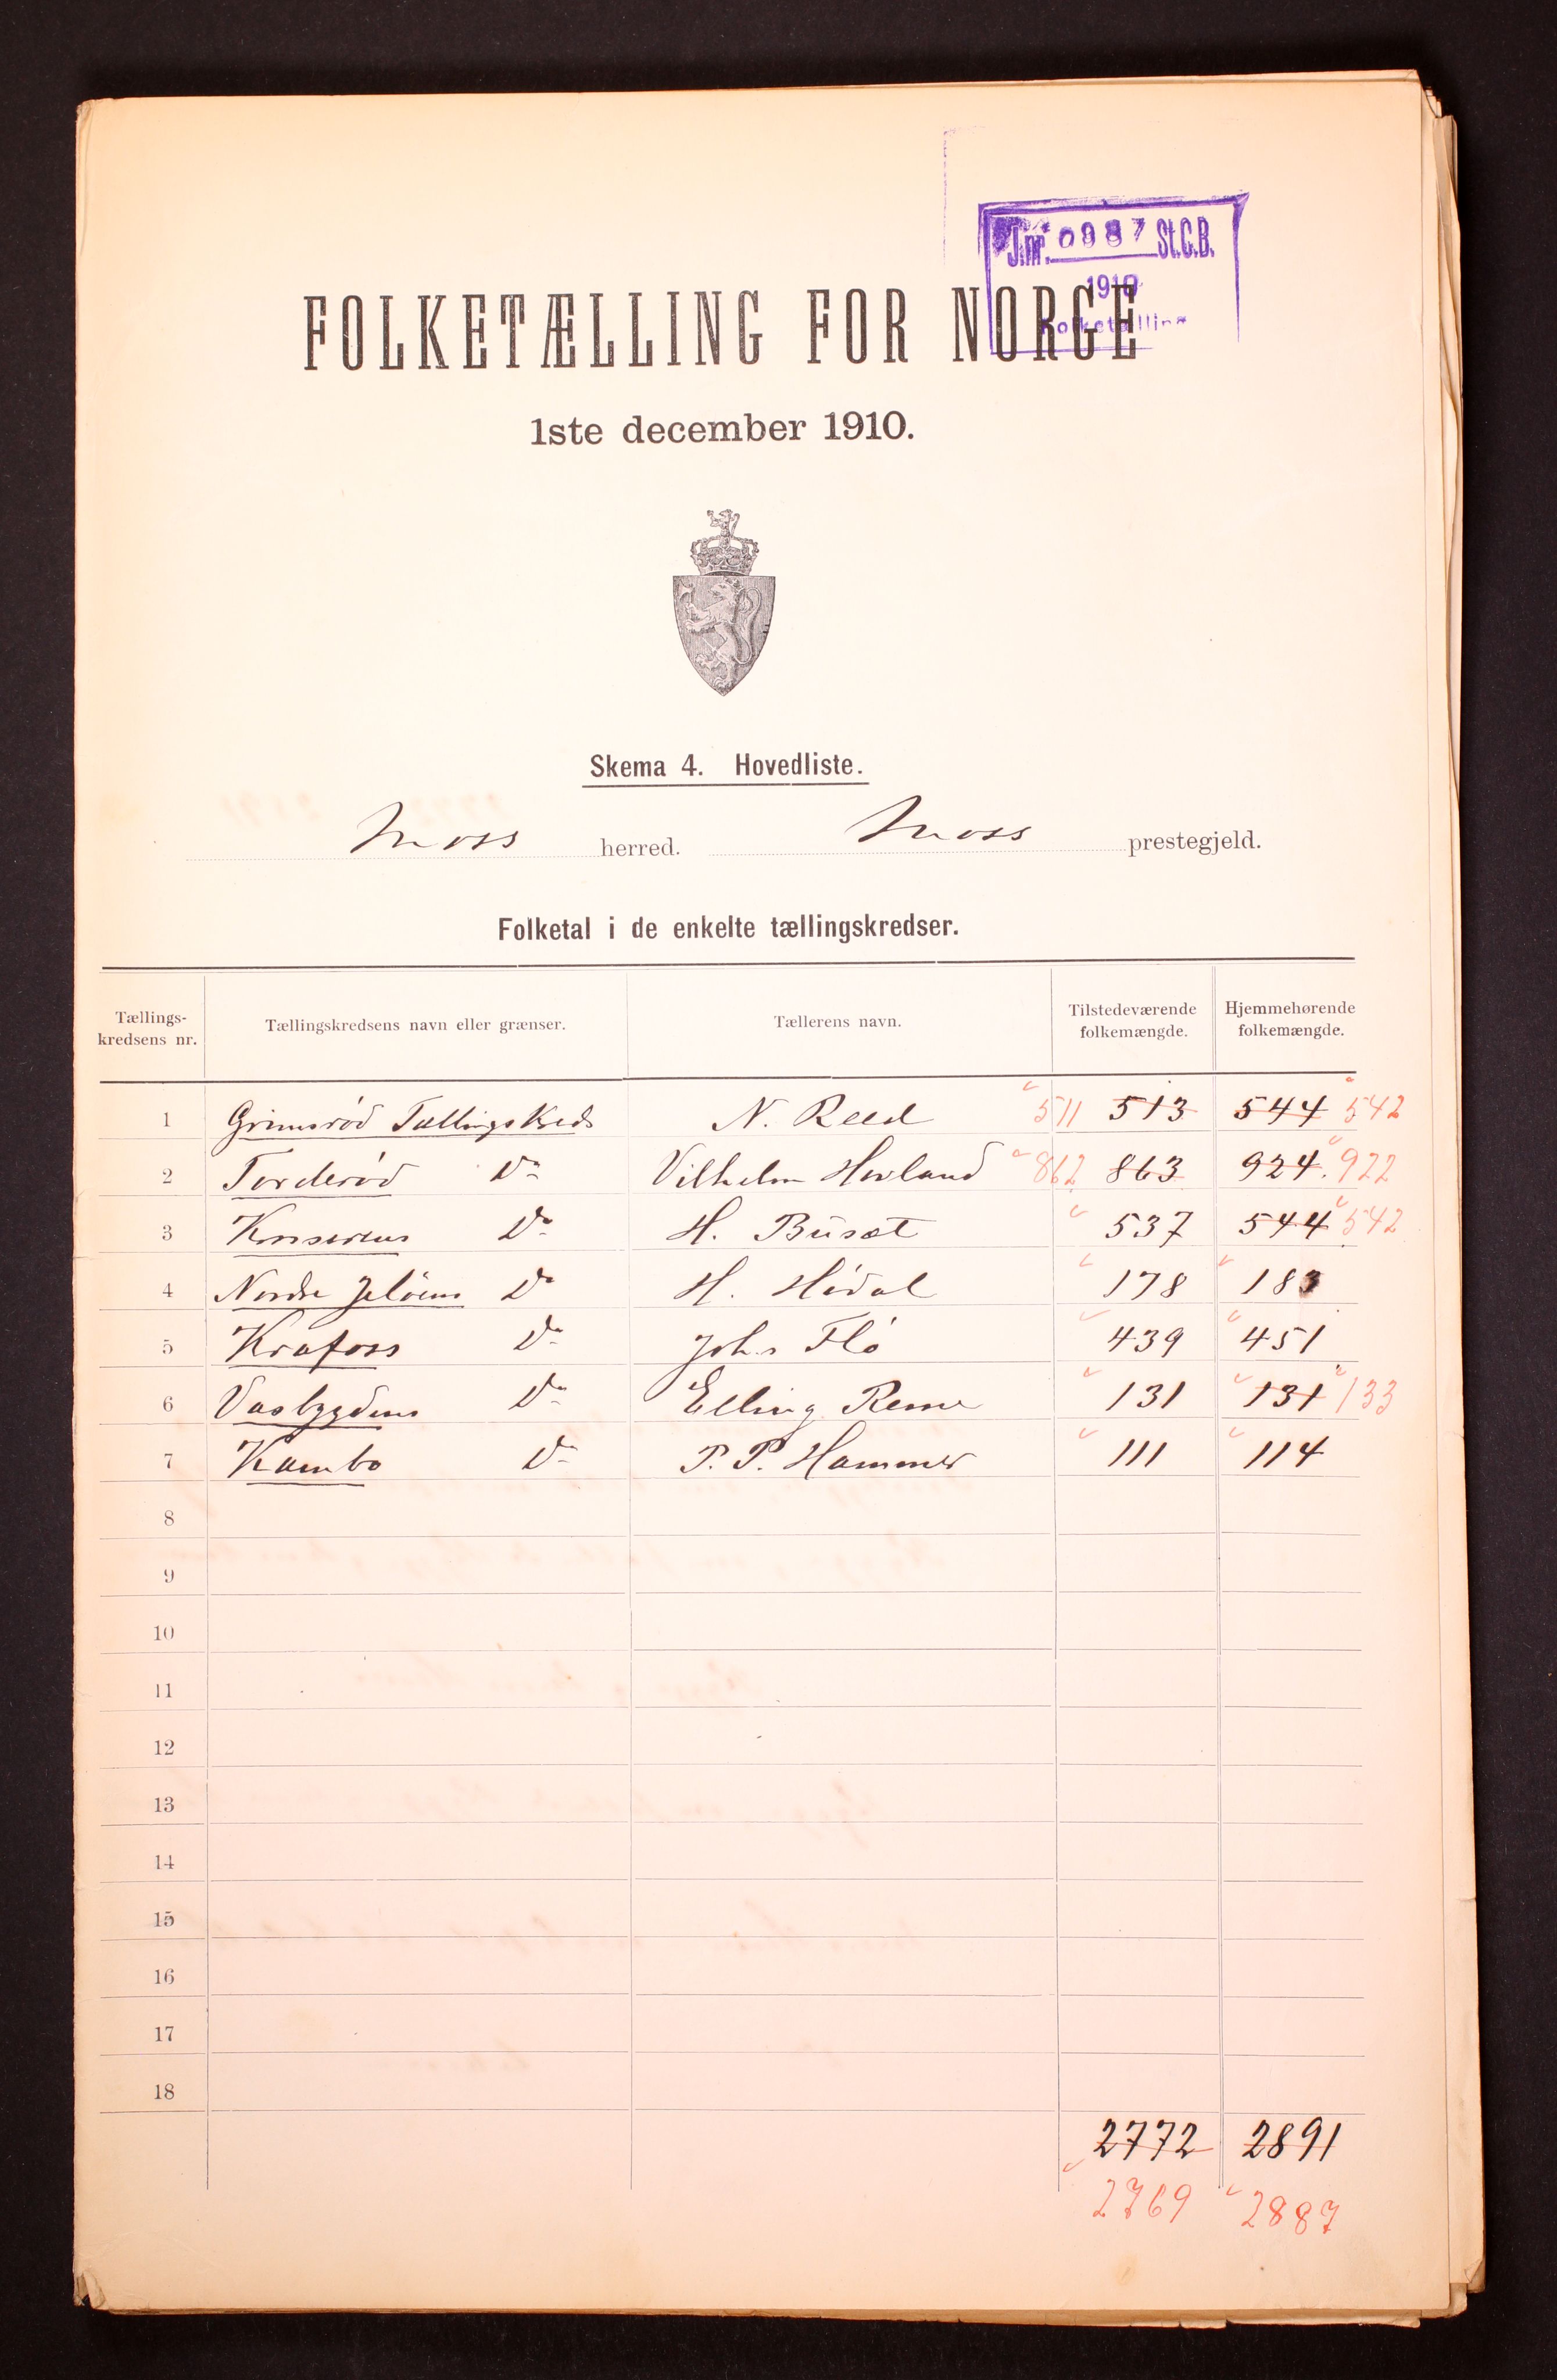 J.nr. 0987 St.C.B.
1910
Folketælling
FOLKETÆLLING FOR NORGE
1ste december 1910.
Skema 4. Hovedliste.
Moss herred. Moss prestegjeld.
Folketal i de enkelte tællingskredser.
Tællings-kredsens nr. Tællingskredsens navn eller grænser. Tællerens navn. Tilstedeværende folkemængde. Hjemmehørende folkemængde.
1 Grimsrød Tællingskreds N. Reed 511 513 544 542
2 Torderød Do Vilhelm Hovland 862 863 924. 922
3 Do H. Busæt 537 544 542
4 Nordre Jeløens Do H. Hödal 178 183
5 Krafoss Do Johs Flö 439 451
6 Vasbygdens Do Elling Reme 131 131 133
7 Kambo Do P. P. Hammer 111 114
8
9
10
11
12
13
14
15
16
17
18
2772 2891
2769 2887